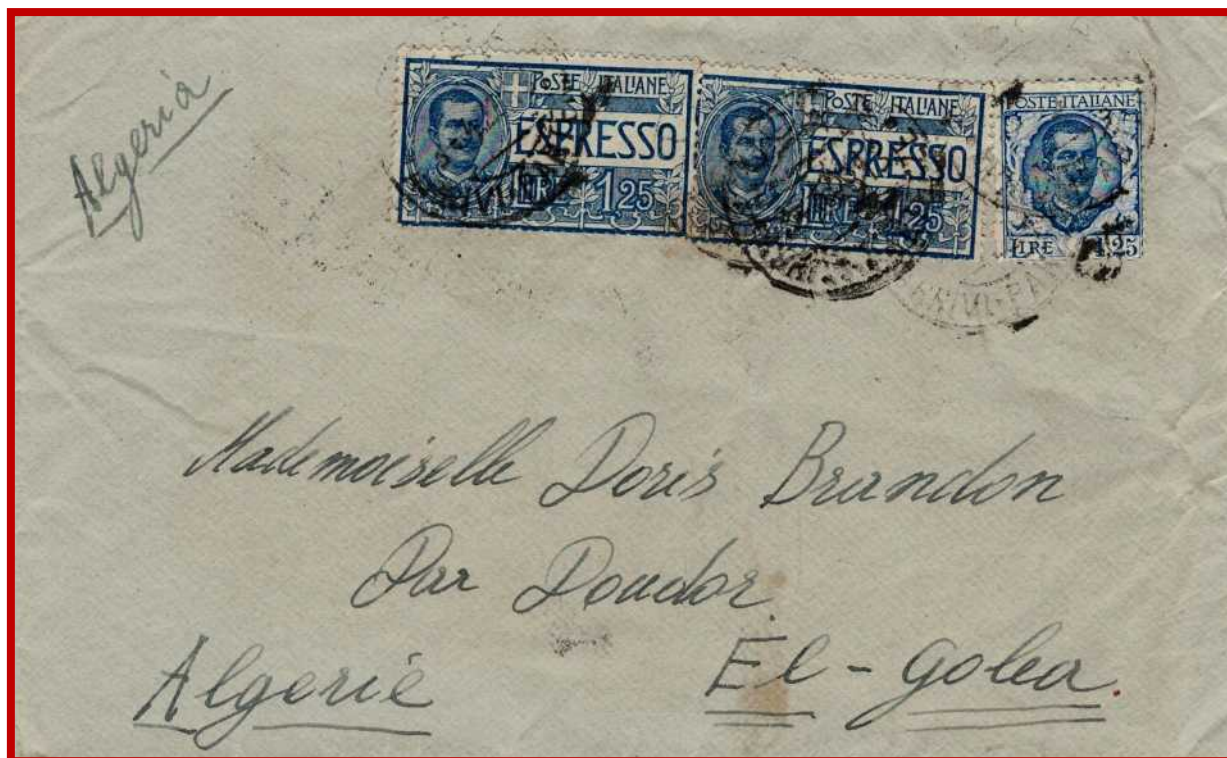 Algeria
POSTE ITALIANE
ESPRESSO
LIRE 1,25
POSTE ITALIANE
ESPRESSO
LIRE 1,25
POSTE ITALIANE
LIRE 1,25
Mademoiselle Doris Brandon
Par Doudor
Algerie El-Golea.